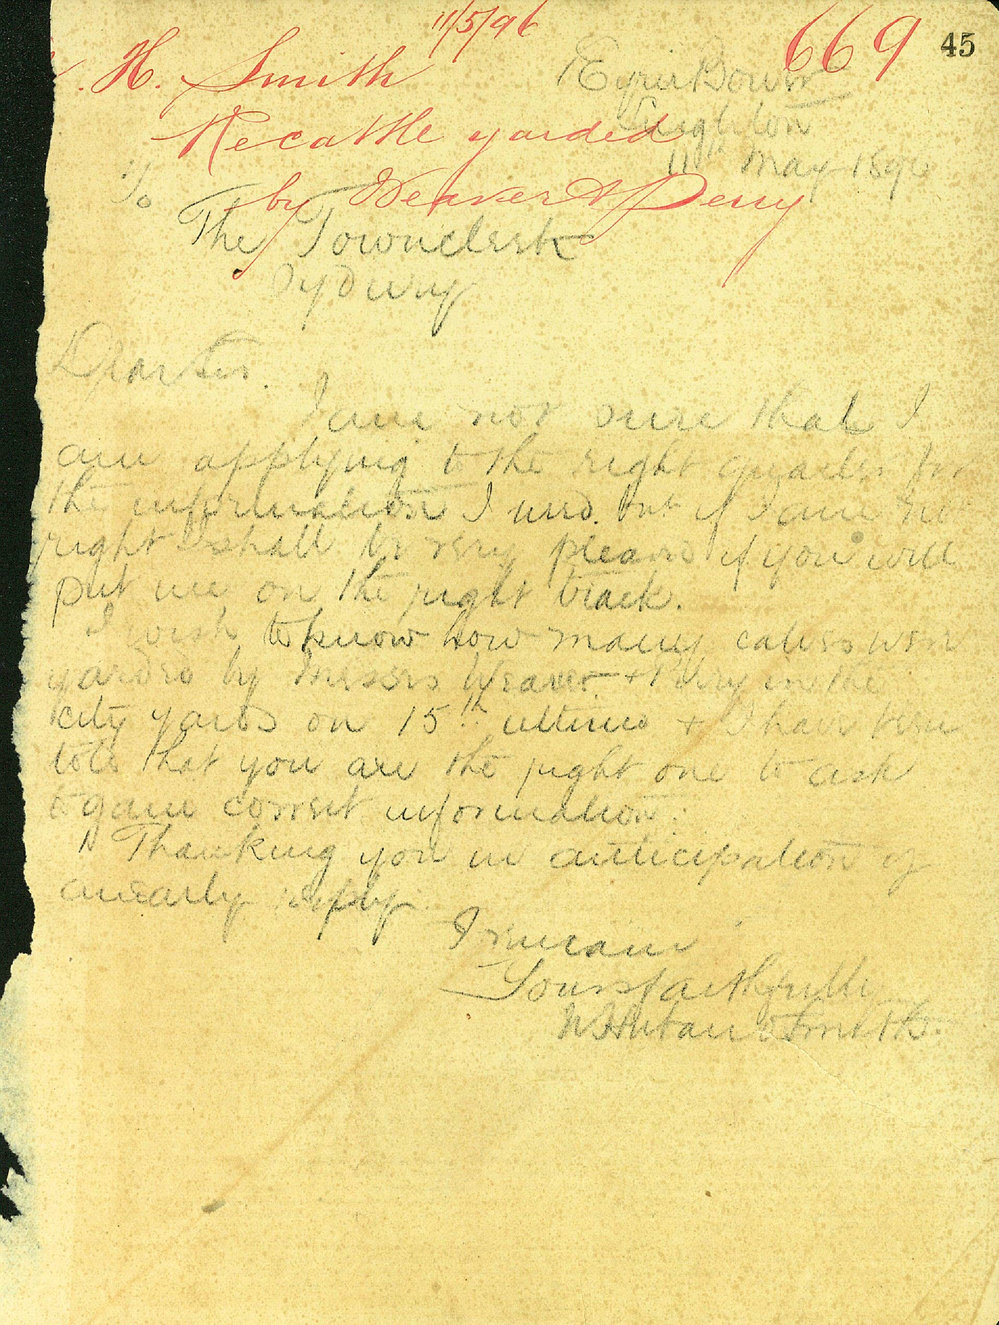 11/5/96
669
45
H. Smith
Re cattle yarded
by Weaver & Perry
Eyrie Bower
Leighton
11th May 1896
The Townclerk
Sydney
Dear Sir.
I am not sure that I
am applying to the right quarter for
the information I need. but if I am not
right I shall be very pleased if you will
put me on the right track.
I wish to know how many calves were
yarded by Messrs Weaver & Perry in the
city yards on 15th ultimo & I have been
told that you are the right one to ask
to gain correct information.
Thanking you in anticipation of
an early reply.
I remain
Yours faithfully
Smith